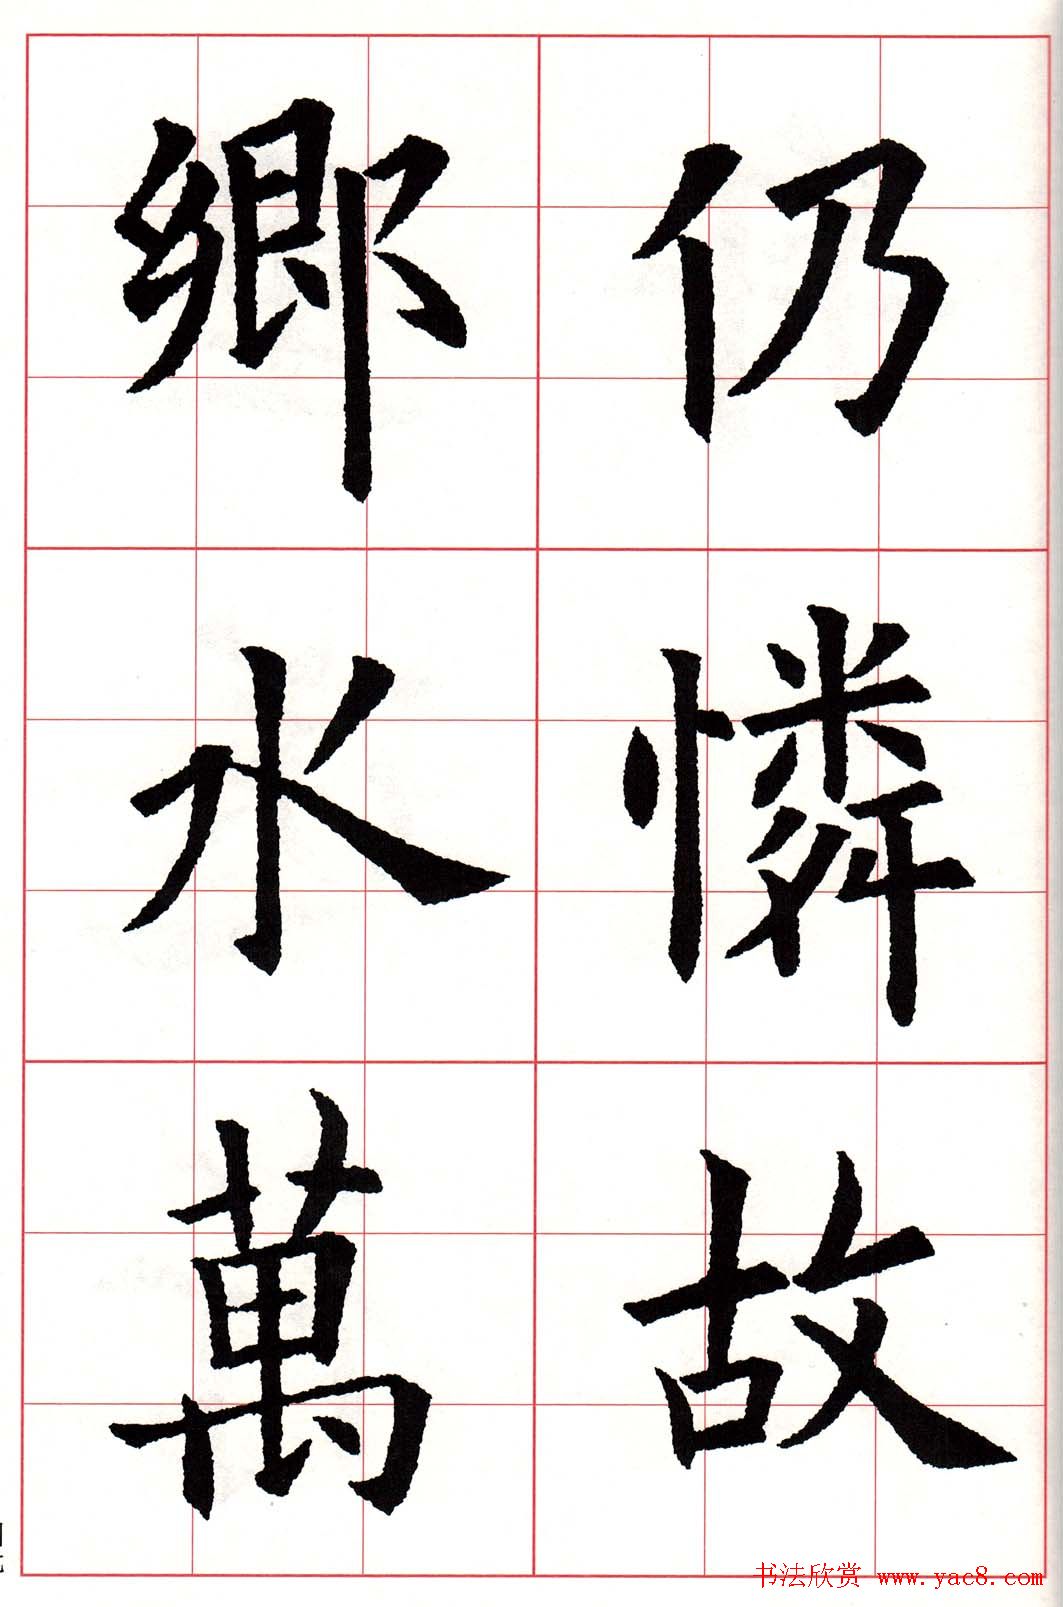 仍憐故
鄉水萬
书法欣赏 www.yac8.com